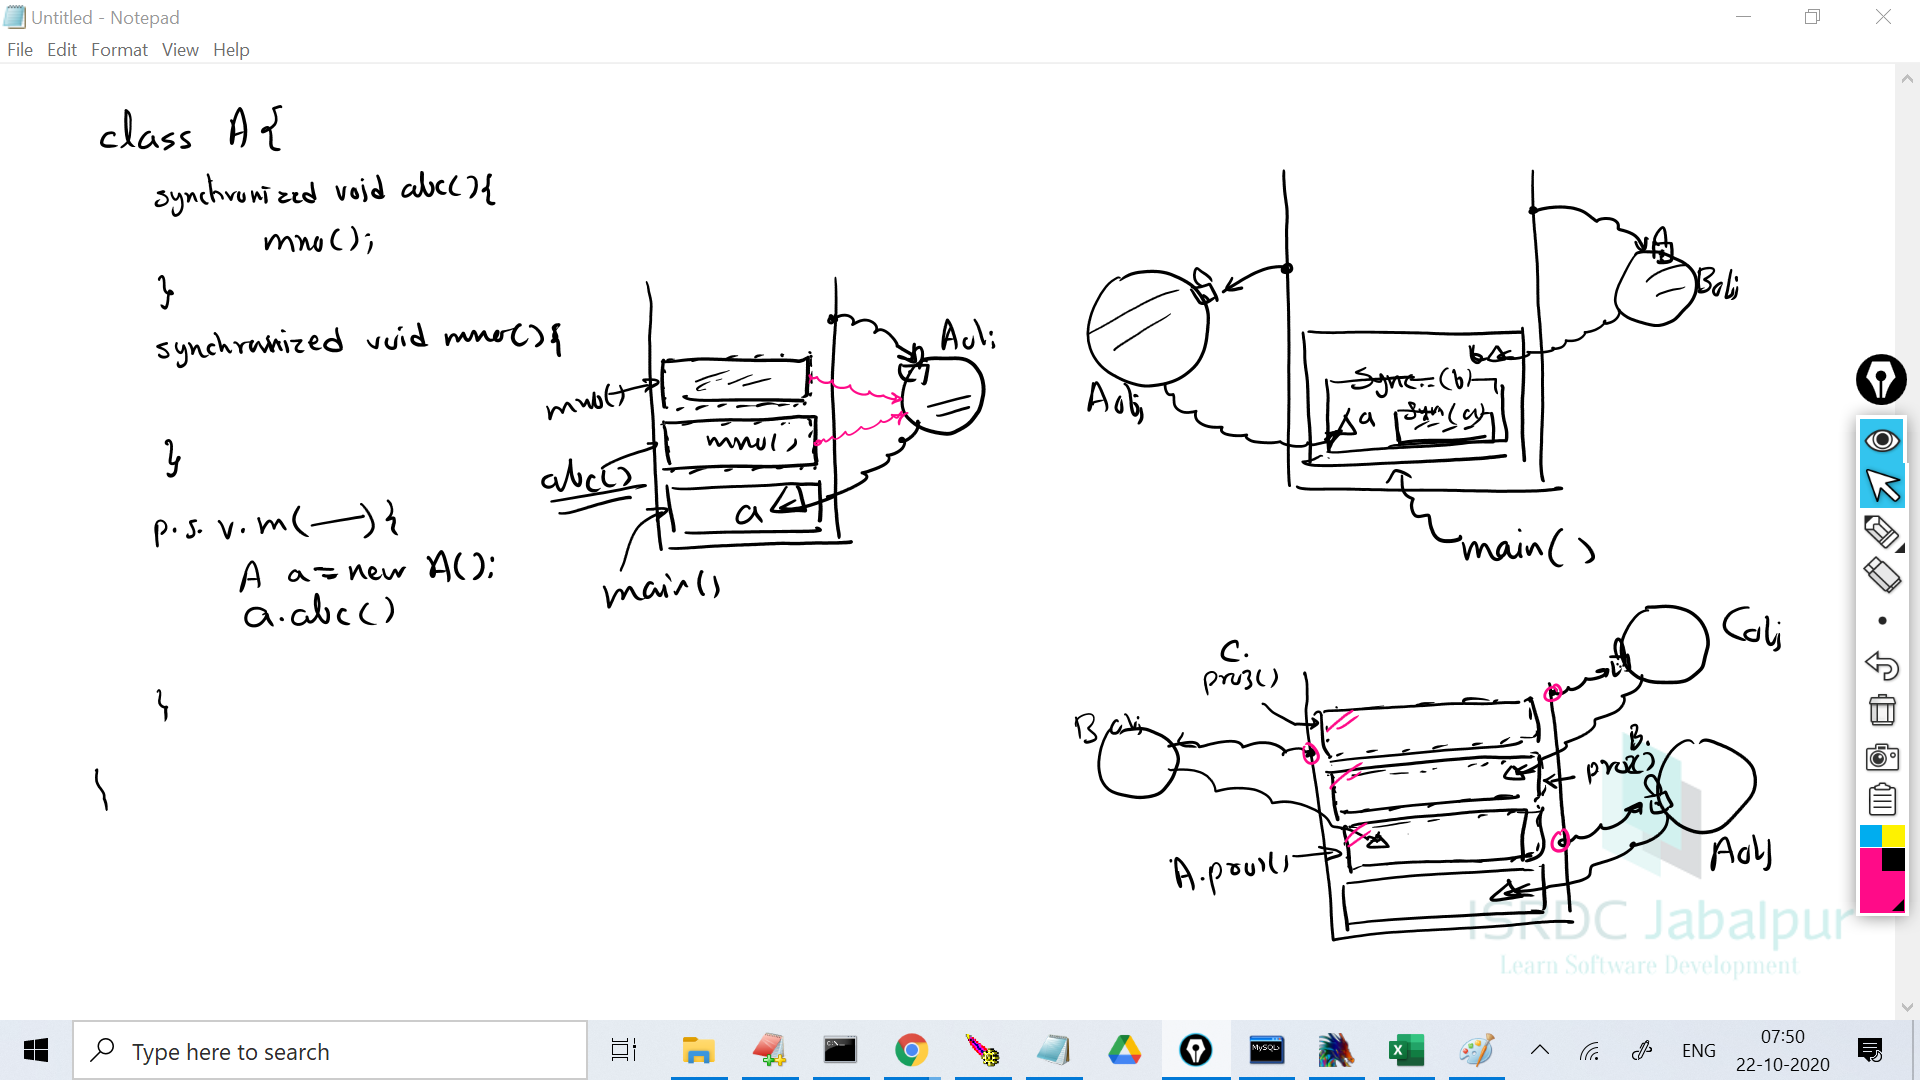 Untitled - Notepad
File Edit Format View Help
class A{
synchronized void abc(){
mno();
}
synchronized void mno(){
}
p.s. v. m( — ) {
A a = new A();
a.abc()
}
mno()
abc()
main()
mno()
a
Aobj
Aobj
Bobj
b
Sync..(b)
a
Syn(a)
main()
C.
pro3()
Cobj
Bobj
B.
pro2()
A.pro1()
Aobj
ISRDC Jabalpur
Learn Software Development
Type here to search
MySQL
ENG
07:50
22-10-2020